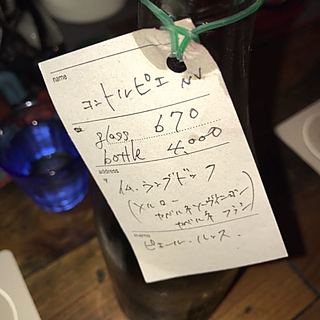 name
コントルピエ NV
glass 670
bottle 4,000
address
(メルロー
カベルネ・ソーヴィニヨン
カベルネ フラン)
ピエール・ルッス.